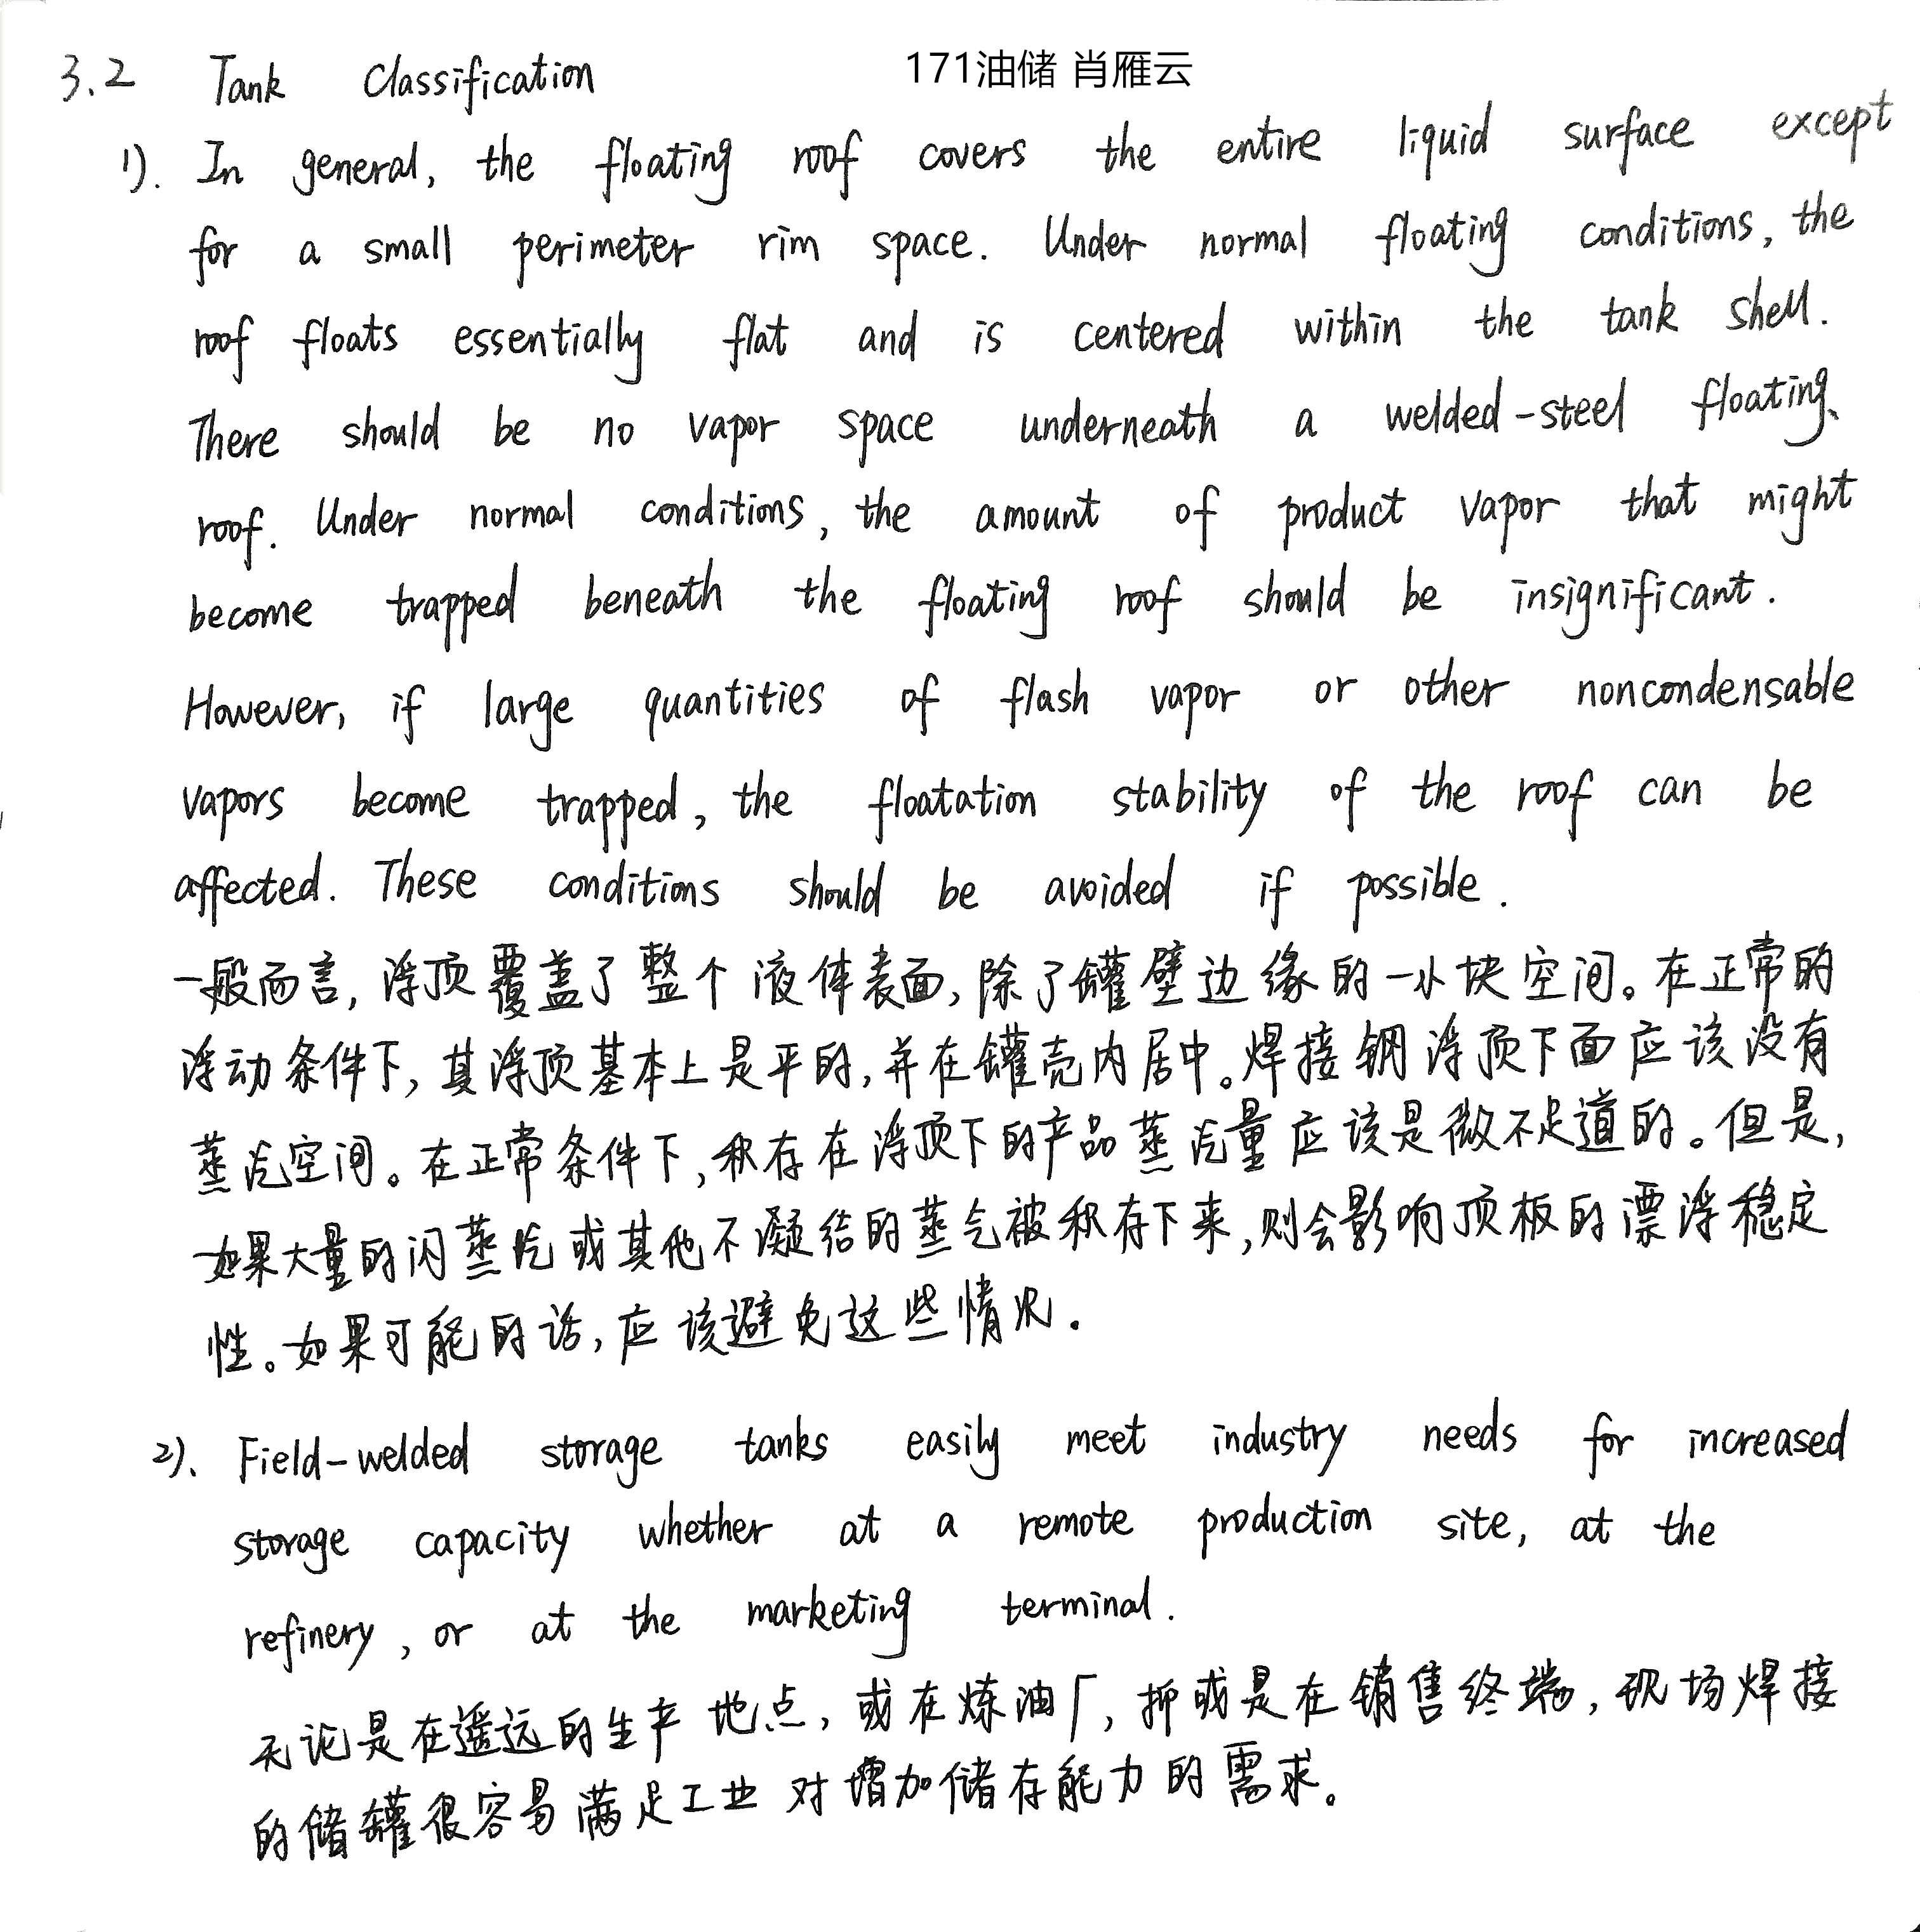 3.2 Tank Classification
171油储 肖雁云
1). In general, the floating roof covers the entire liquid surface except
for a small perimeter rim space. Under normal floating conditions, the
roof floats essentially flat and is centered within the tank shell.
There should be no vapor space underneath a welded-steel floating
roof. Under normal conditions, the amount of product vapor that might
become trapped beneath the floating roof should be insignificant.
However, if large quantities of flash vapor or other noncondensable
vapors become trapped, the floatation stability of the roof can be
affected. These conditions should be avoided if possible.
一般而言，浮顶覆盖了整个液体表面，除了罐壁边缘的一小块空间。在正常的
浮动条件下，其浮顶基本上是平的，并在罐壳内居中。焊接钢浮顶下面应该没有
蒸汽空间。在正常条件下，积存在浮顶下的产品蒸汽量应该是微不足道的。但是，
如果大量的闪蒸汽或其他不凝结的蒸气被积存下来，则会影响顶板的漂浮稳定
性。如果可能的话，应该避免这些情况.
2). Field-welded storage tanks easily meet industry needs for increased
storage capacity whether at a remote production site, at the
refinery, or at the marketing terminal.
无论是在遥远的生产地点，或在炼油厂，抑或是在销售终端，现场焊接
的储罐很容易满足工业对增加储存能力的需求。